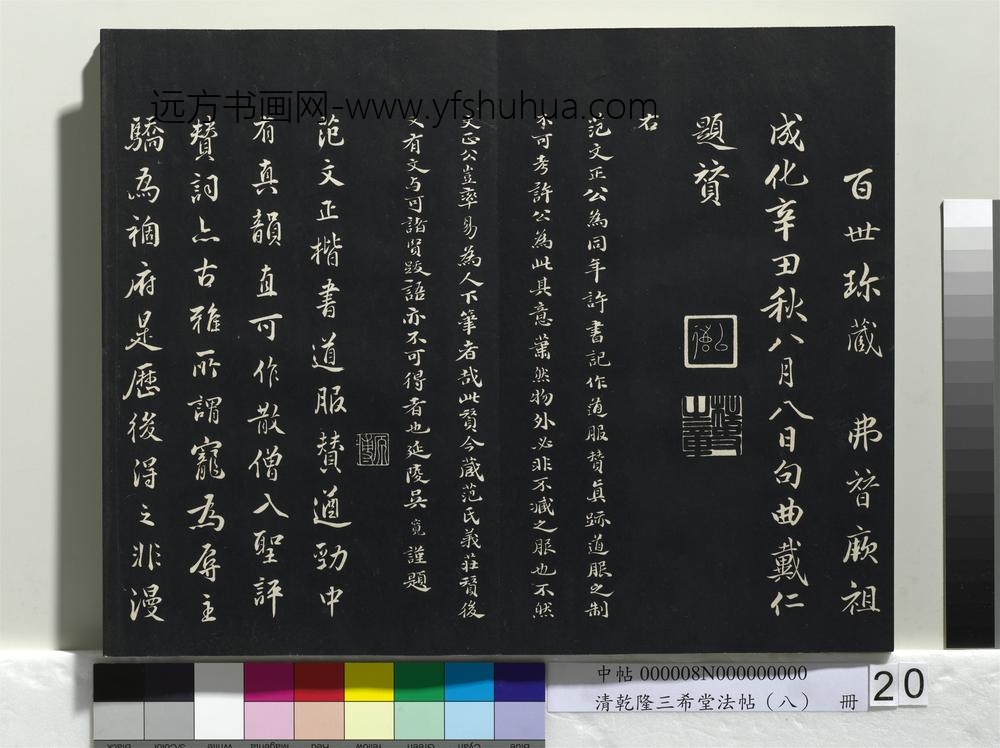 百世珎藏 弗替厥祖
成化辛丑秋八月八日句曲戴仁
題贊
右
范文正公為同年許書記作道服賛真跡道服之制
不可考許公為此其意蕭然物外必非不減之服也不然
文正公豈率易為人下筆者哉此賛今藏范氏義莊賛後
又有文与可諸賢跋語亦不可得者也延陵吳寬謹題
范文正楷書道服賛遒勁中
有真韻直可作散僧入聖評
賛詞亦古雅所謂寵為辱主
驕為禍府是歷後得之非漫
远方书画网-www.yfshuhua.com
中帖 000008N000000000
清乾隆三希堂法帖（八） 冊
20
Black
3/Color
White
Magenta
Red
Yellow
Green
Cyan
Blue